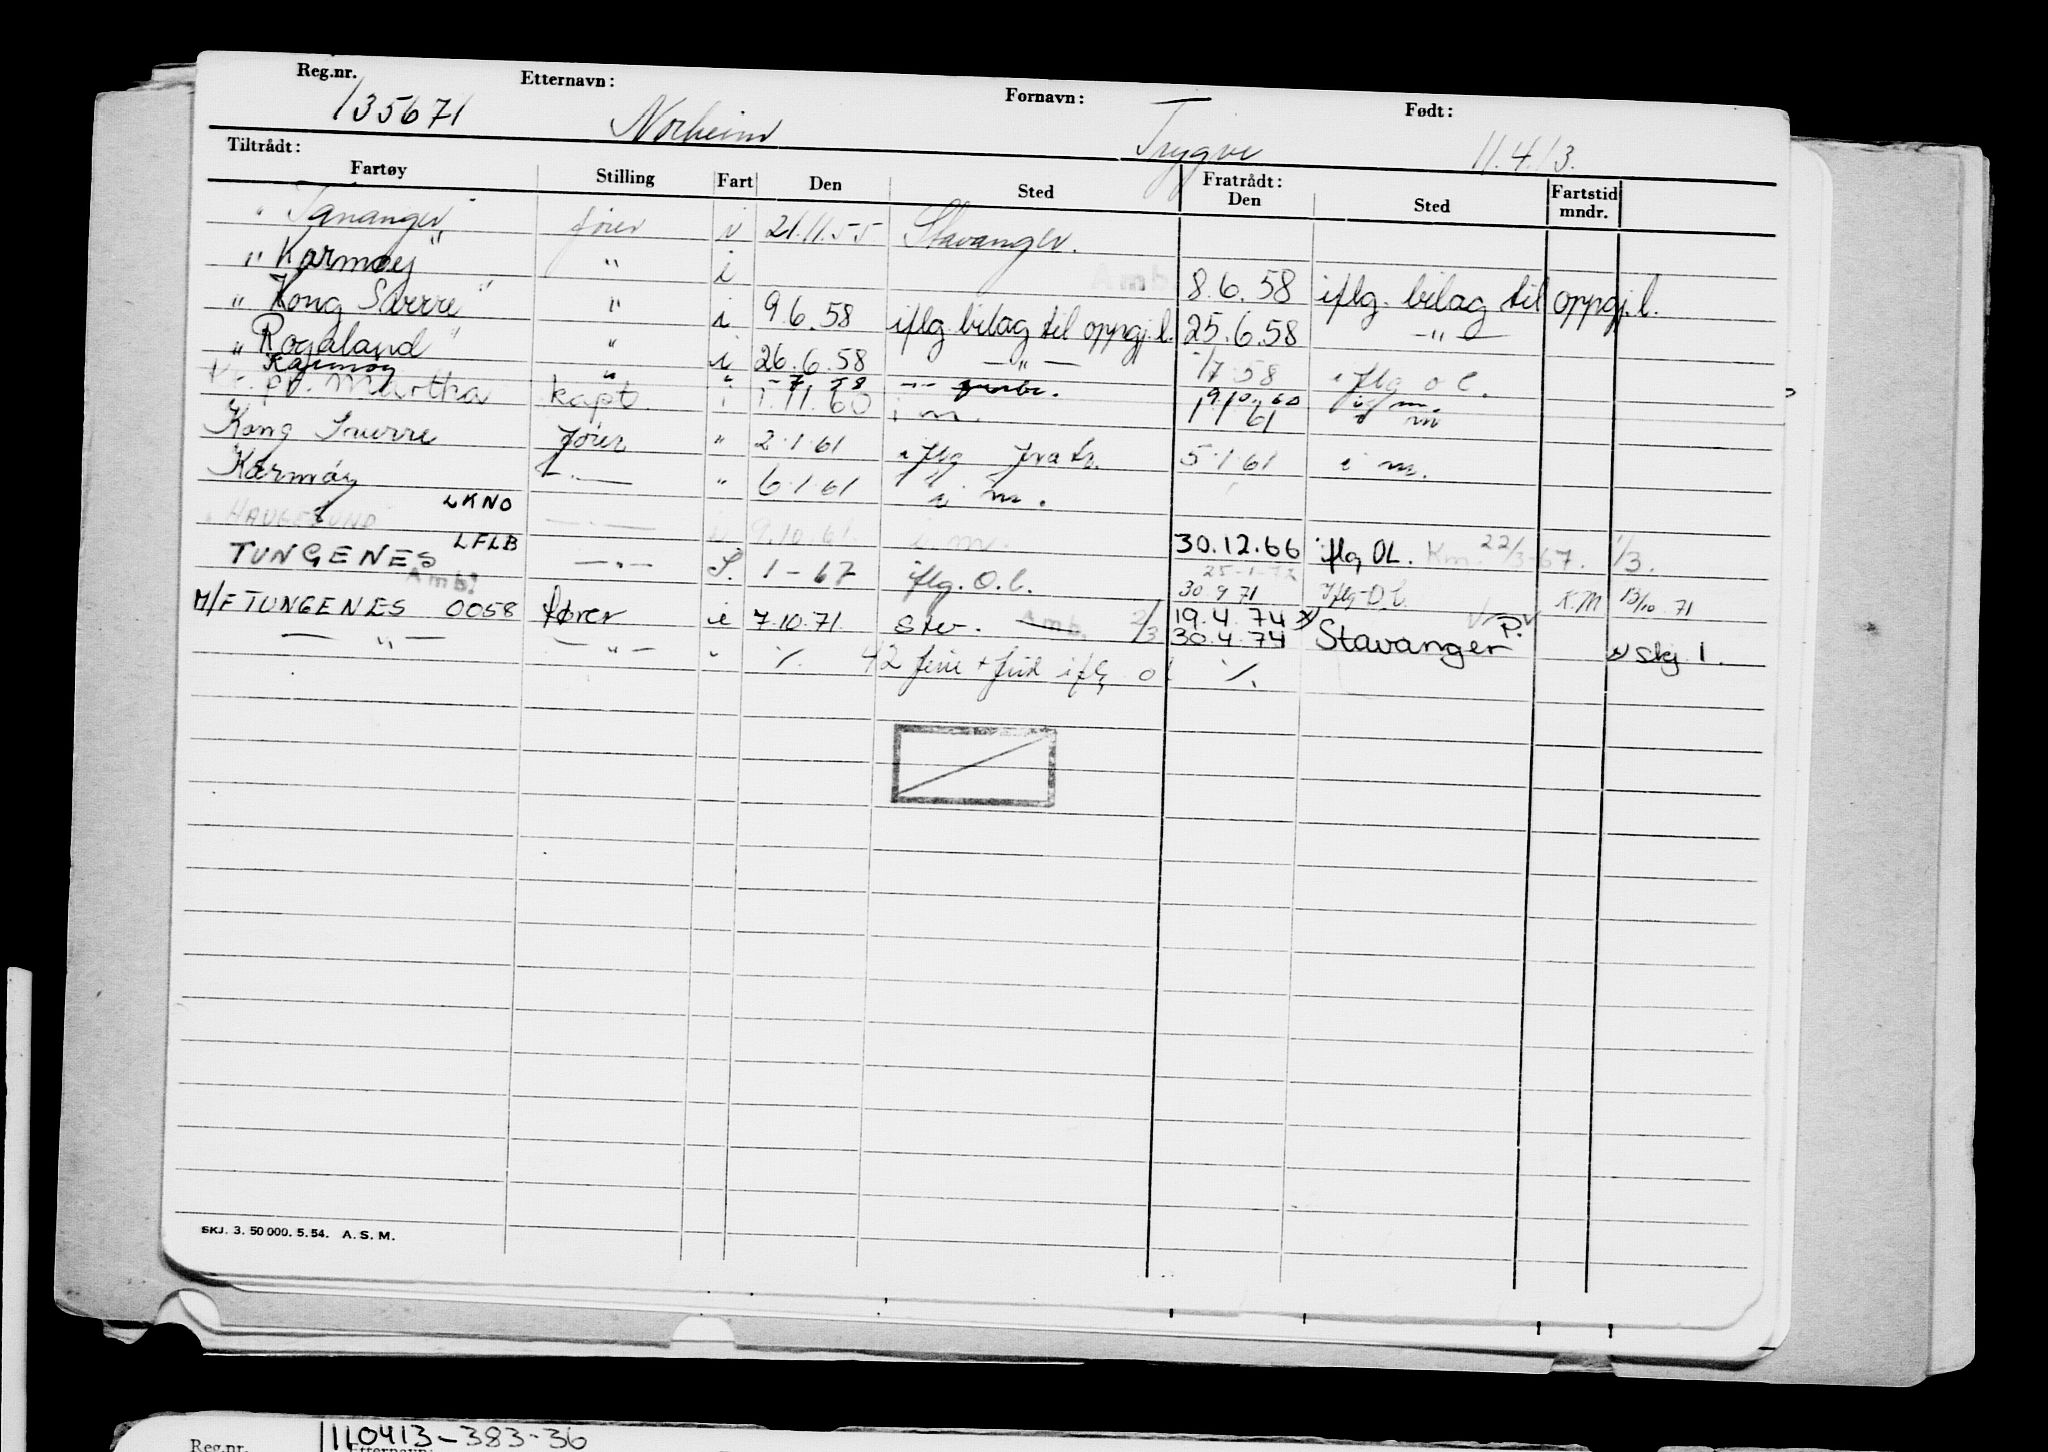 Reg.nr. Etternavn: Fornavn: Født:
135671 Norheim Trygve 11.4.13.
Tiltrådt: Fratrådt:
Fartøy Stilling Fart Den Sted Den Sted Fartstid mndr.
"Tananger" fører i 21.11.55 Stavanger.
"Karmøy" " i Amb. 8.6.58 iflg. bilag til oppgj.l.
"Kong Sverre" " i 9.6.58 iflg bilag til oppgj.l. 25.6.58 -"-
"Rogaland" " i 26.6.58 -"- /7 58 iflg o l.
Karmøy " " -7 58 9.10.60 i m.
Martha kapt. i 1.11.60 i m. 1/1 61 i m
Kong Sverre fører " 2.1.61 iflg 5.1.61 i m.
Karmøy -"- " 6.1.61 i m.
HAUGESUND LKNO -"- i 9.10.61 i m. 30.12.66 iflg OL. Km. 22/3-67. 1/3.
TUNGENES LFLB -"- S. 1-67 iflg. O.l. 25-1-72
Amb! 30.9 71 Iflg O.L. K.M 13/10 71
M/F TUNGENES 0058 fører ie 7.10.71. Stv. Amb. 2/3 19.4.74 x)
-"- -"- " 30.4.74 Stavanger P. x) skj 1.
%. 42 ferie + frid iflg ol %.
SKJ. 3. 50 000. 5. 54. A. S. M.
Reg.nr. 110413-383-36
Etternavn: